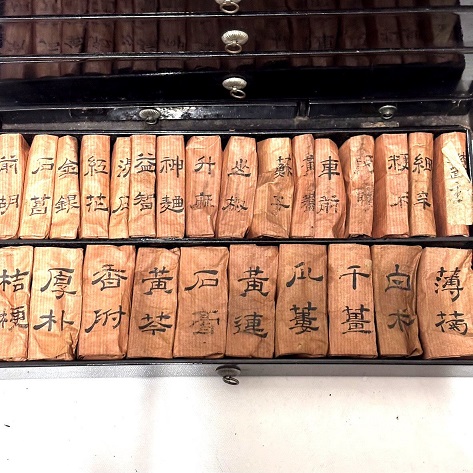 前胡
石菖
金銀
紅花
益智
神麯
升麻
車前
細辛
桔梗
厚朴
香附
黄芩
石膏
黄連
瓜蔞
干薑
白朮
薄荷